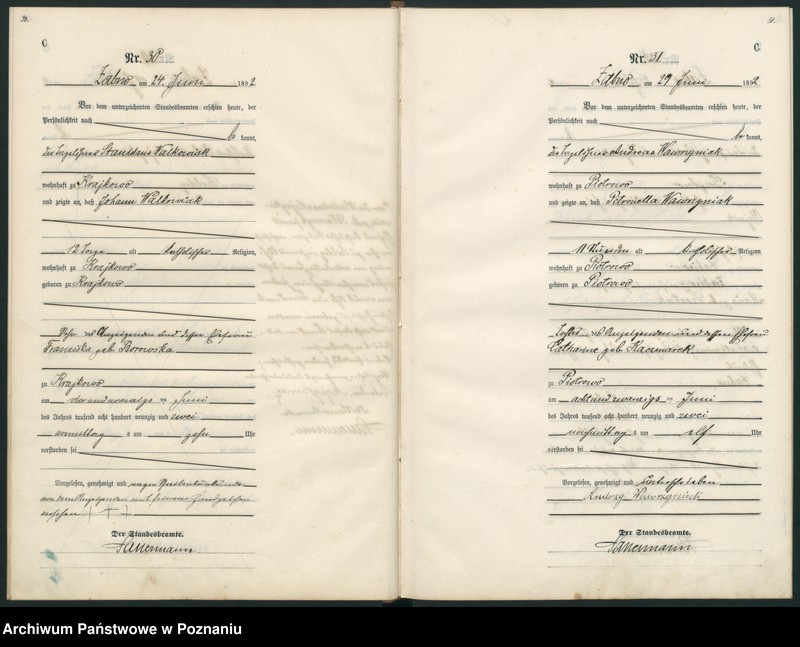 30.
C
Nr. 30
Żabno am 24. Juni 1892
Vor dem unterzeichneten Standesbeamten erschien heute, der
Persönlichkeit nach
be kannt,
der Tagelöhner Stanislaus Walkowiak
wohnhaft zu Krajkowo
und zeigte an, daß Johann Walkowiak
12 Tage alt katholischer Religion,
wohnhaft zu Krajkowo
geboren zu Krajkowo
Sohn des Anzeigenden und dessen Ehefrau
Franziska geb. Borowska
zu Krajkowo
am vierundzwanzigsten Juni
des Jahres tausend acht hundert neunzig und zwei
vormittag s um zehn Uhr
verstorben sei
Vorgelesen, genehmigt und wegen Schreibensunkunde
von dem Anzeigenden mit seinem Handzeichen
versehen + + +
Der Standesbeamte.
31.
C.
Nr. 31
Żabno am 29 Juni 1892
Vor dem unterzeichneten Standesbeamten erschien heute, der
Persönlichkeit nach
be kannt,
der Tagelöhner Andreas Wawrzyniak
wohnhaft zu Piotrowo
und zeigte an, daß Petronella Wawrzyniak
11 Stunden alt katholischer Religion
wohnhaft zu Piotrowo
geboren zu Piotrowo
Tochter des Anzeigenden und dessen Ehefrau
Catharine geb. Kaczmarek
zu Piotrowo
am achtundzwanzigsten Juni
des Jahres tausend acht hundert neunzig und zwei
nachmittag s um elf Uhr
verstorben sei
Vorgelesen, genehmigt und unterschrieben
Wawrzyniak
Der Standesbeamte.
Archiwum Państwowe w Poznaniu